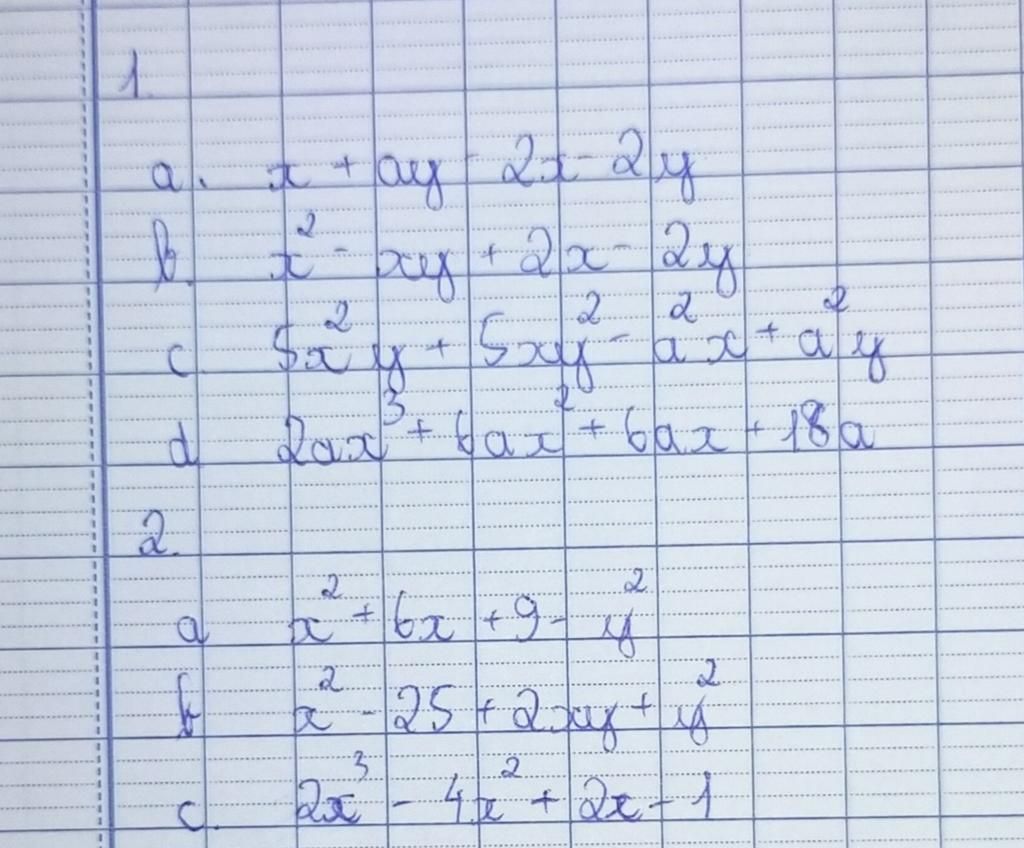 1.
a. x + ay - 2x - 2y
b. x² - xy + 2x - 2y
c. 5x²y + 5xy² - a²x + a²y
d 2ax³ + 6ax² + 6ax + 18a
2.
a x² + 6x + 9 - y²
b x² - 25 + 2xy + y²
c. 2x³ - 4x² + 2x - 1